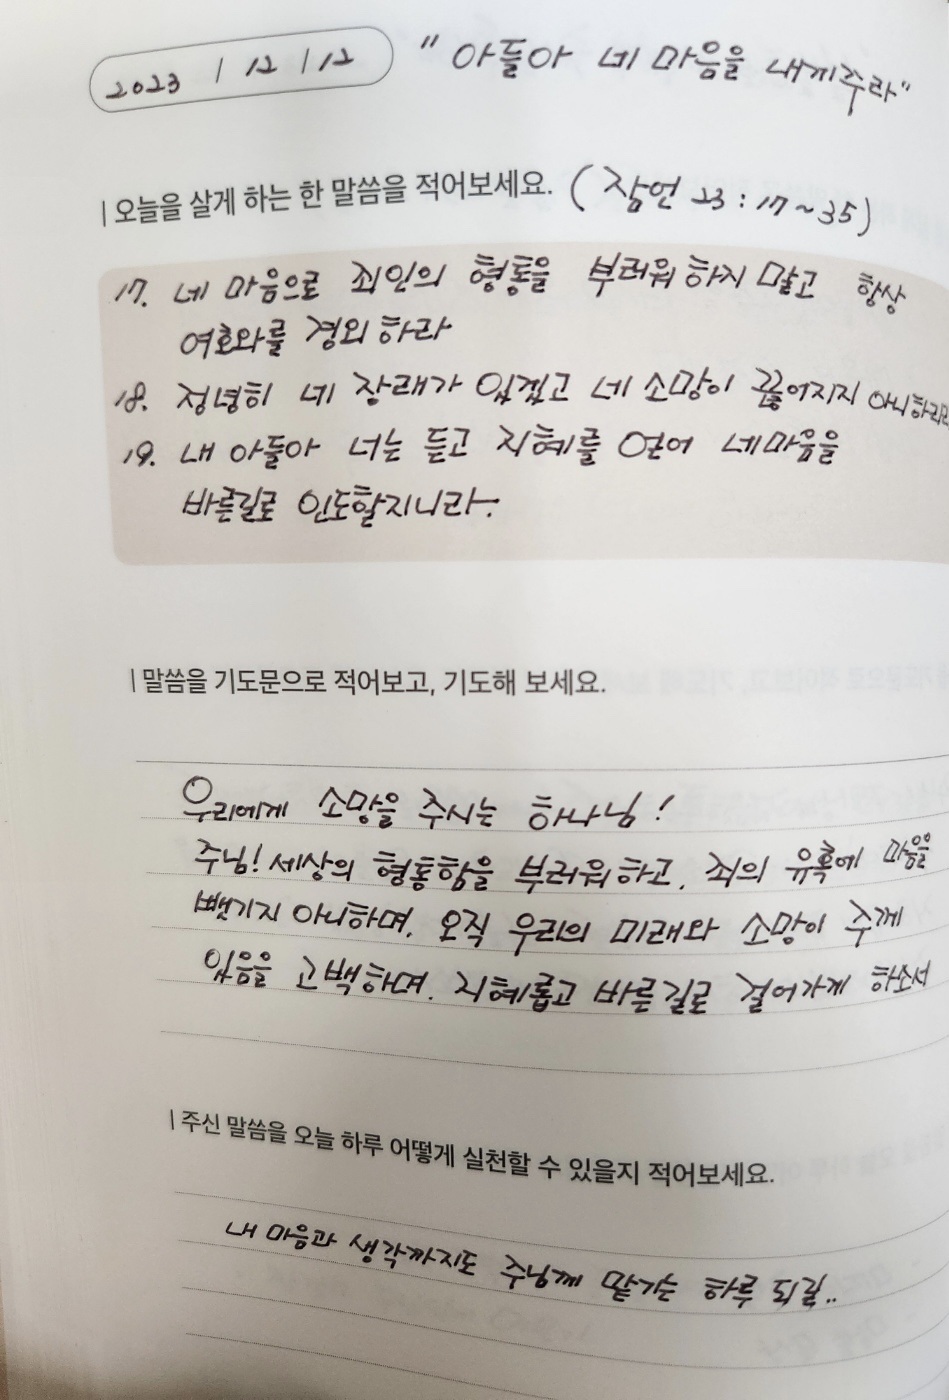 2023 / 12 / 12 " 아들아 네 마음을 내게주라"
| 오늘을 살게 하는 한 말씀을 적어보세요. (잠언 23:17~35)
17. 네 마음으로 죄인의 형통을 부러워하지 말고 항상
여호와를 경외하라
18. 정녕히 네 장래가 있겠고 네 소망이 끊어지지 아니하리라
19. 내 아들아 너는 듣고 지혜를 얻어 네마음을
바른길로 인도할지니라.
| 말씀을 기도문으로 적어보고, 기도해 보세요.
우리에게 소망을 주시는 하나님!
주님! 세상의 형통함을 부러워하고, 죄의 유혹에 마음을
뺏기지 아니하며, 오직 우리의 미래와 소망이 주께
있음을 고백하며, 지혜롭고 바른길로 걸어가게 하소서
| 주신 말씀을 오늘 하루 어떻게 실천할 수 있을지 적어보세요.
내 마음과 생각까지도 주님께 맡기는 하루 되길..